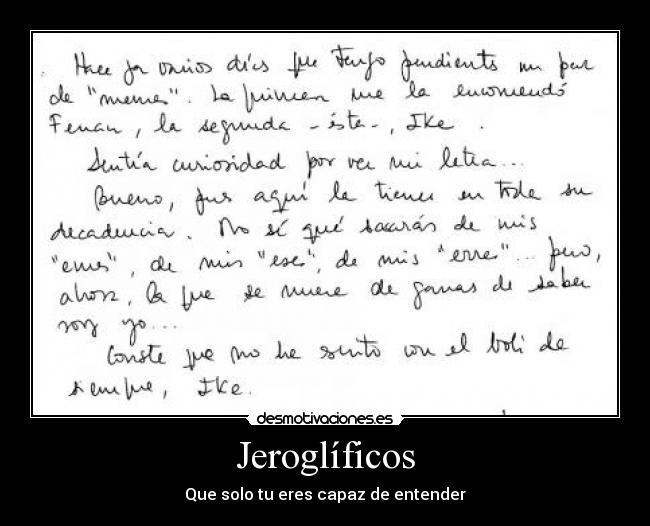 Hace ya varios días que tengo pendiente un par
de "memes". La primera me la encomendó
Fernan, la segunda -ésta-, Ike.
Sentía curiosidad por ver mi letra...
Bueno, pues aquí la tienes en toda su
decadencia. No sé qué sacarás de mis
"emes", de mis "eses", de mis "erres"... pero,
ahora, la que se muere de ganas de saber
soy yo...
Conste que no he escrito con el boli de
siempre, Ike.
desmotivaciones.es
Jeroglíficos
Que solo tu eres capaz de entender